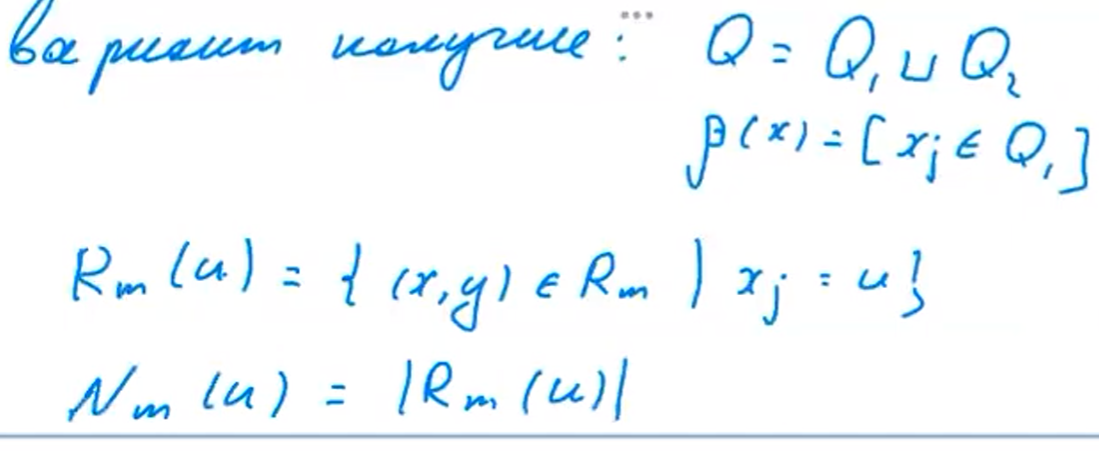 вариант получше: Q = Q₁ ⊔ Q₂
β(x) = [x_j ∈ Q₁]
R_m(u) = { (x,y) ∈ R_m | x_j = u }
N_m(u) = |R_m(u)|